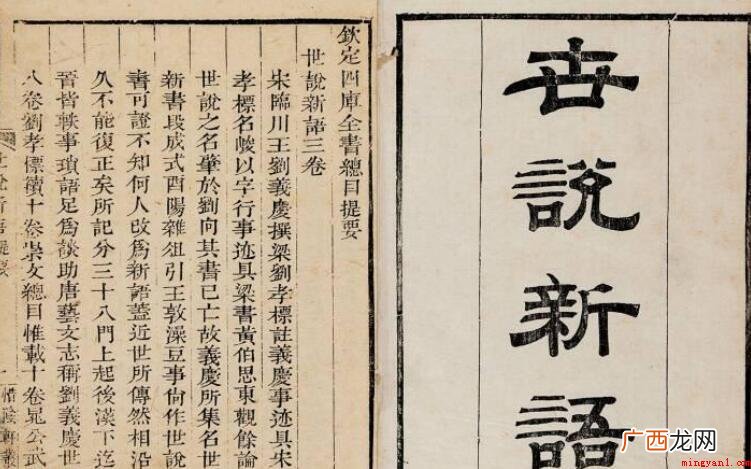 世說新語
欽定四庫全書總目提要
世說新語三卷
宋臨川王劉義慶撰梁劉孝標註義慶事迹具宋
孝標名峻以字行事迹具梁書黃伯思東觀餘論
世說之名肇於劉向其書已亡故義慶所集名世
新書段成式酉陽雜俎引王敦澡豆事尙作世說
書可證不知何人改爲新語蓋近世所傳然相沿
久不能復正矣所記分三十八門上起後漢下迄
晉皆軼事瑣語足爲談助唐藝文志稱劉義慶世
八卷劉孝標續十卷崇文總目惟載十卷晁公武
世說新語提要
一
惜陰軒叢
广西龙网
mingyan1.com